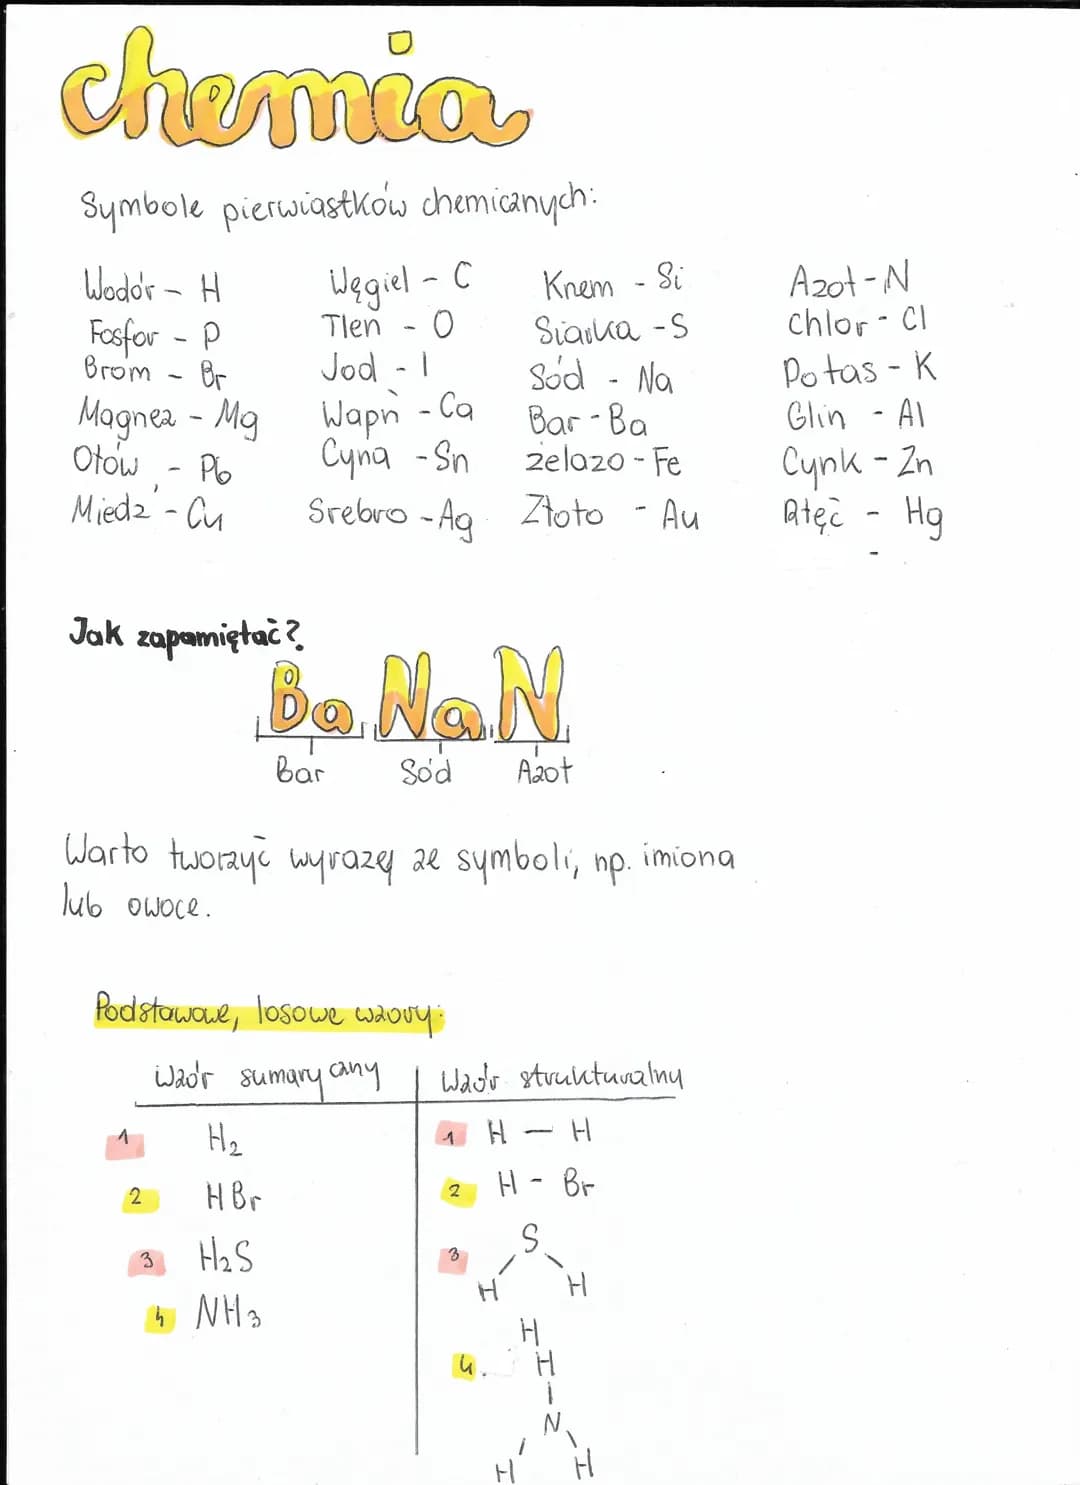 chemia
Symbole pierwiastków chemicznych:
Wodór - H Węgiel - C Krzem - Si Azot - N
Fosfor - P Tlen - O Siarka - S Chlor - Cl
Brom - Br Jod - I Sód - Na Potas - K
Magnez - Mg Wapń - Ca Bar - Ba Glin - Al
Ołów - Pb Cyna - Sn żelazo - Fe Cynk - Zn
Miedź - Cu Srebro - Ag Złoto - Au Rtęć - Hg
Jak zapamiętać?
Ba Na N
Bar Sód Azot
Warto tworzyć wyrazy ze symboli, np. imiona
lub owoce.
Podstawowe, losowe wzory:
Wzór sumaryczny Wzór strukturalny
1 H2 1 H — H
2 HBr 2 H - Br
3 H2S 3 S
H H
4 NH3
H
4. H
N
H H